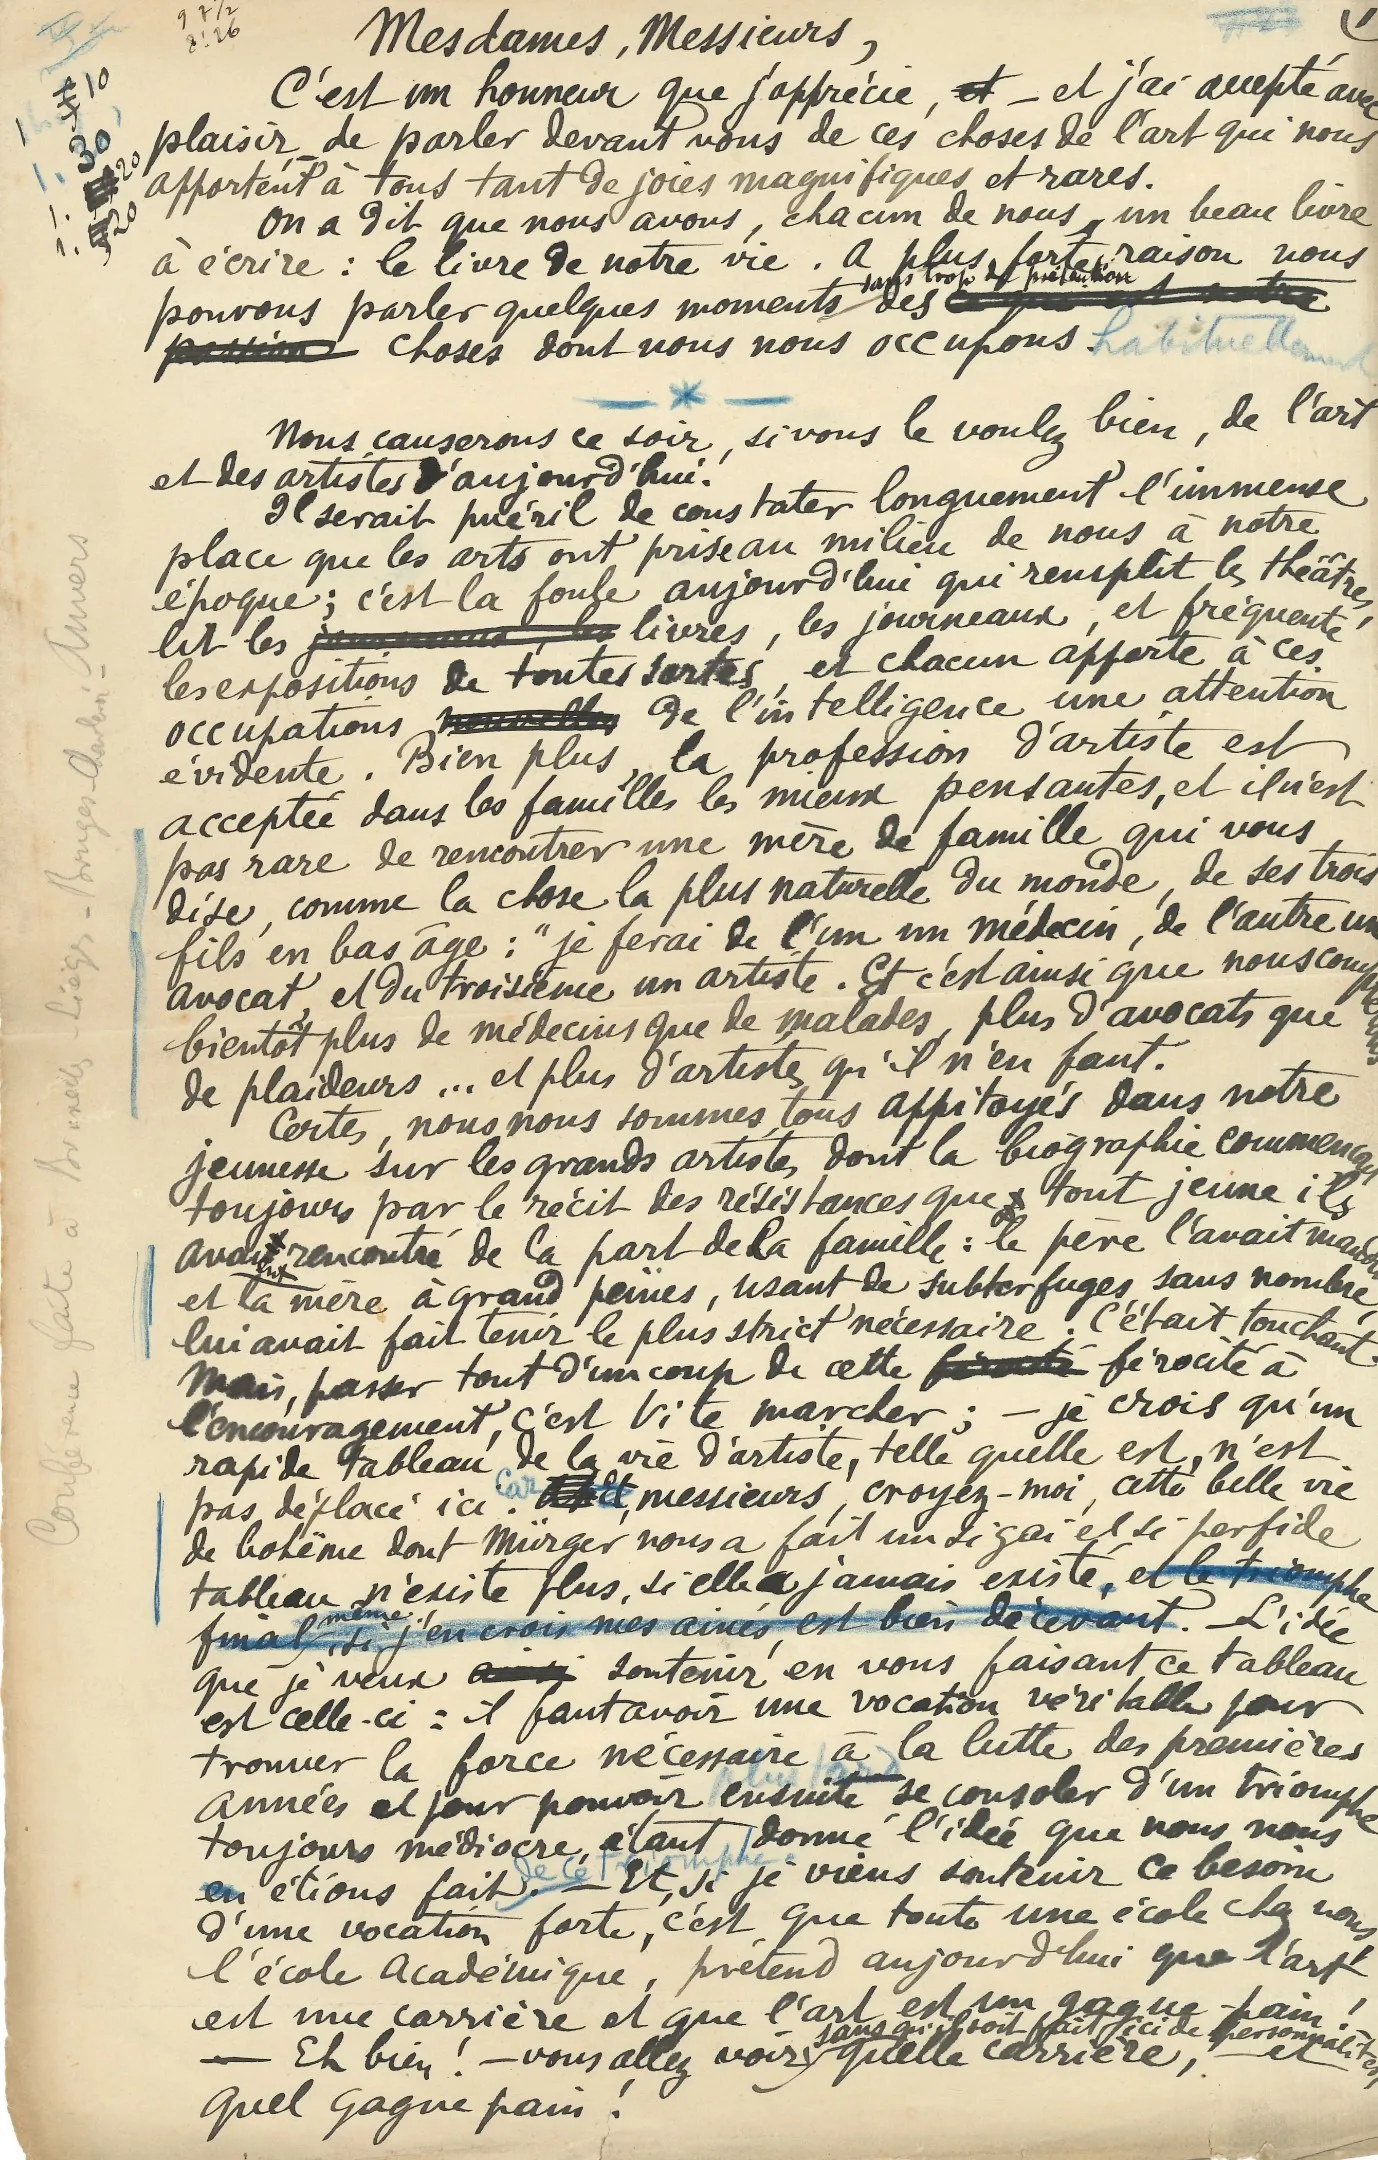 9 7 1/2
8:26
10
30
20
20
Mesdames, Messieurs,
C'est un honneur que j'apprécie, et – et j'ai accepté avec
plaisir de parler devant vous de ces choses de l'art qui nous
apportent à tous tant de joies magnifiques et rares.
On a dit que nous avons, chacun de nous, un beau livre
à écrire : le livre de notre vie. A plus forte raison nous
sans trop de prétention
pouvons parler quelques moments des ce qui est notre
passion choses dont nous nous occupons habituellement
Nous causerons ce soir, si vous le voulez bien, de l'art
et des artistes d'aujourd'hui.
Il serait puéril de constater longuement l'immense
place que les arts ont prise au milieu de nous à notre
époque ; c'est la foule aujourd'hui qui remplit les théâtres,
lit les journeaux, les livres, les journeaux, et fréquente
les expositions de toutes sortes, et chacun apporte à ces
occupations nouvelles de l'intelligence une attention
évidente. Bien plus, la profession d'artiste est
acceptée dans les familles les mieux pensantes, et il n'est
pas rare de rencontrer une mère de famille qui vous
dise, comme la chose la plus naturelle du monde, de ses trois
fils en bas âge : "je ferai de l'un un médecin, de l'autre un
avocat, et du troisième un artiste. Et c'est ainsi que nous compterons
bientôt plus de médecins que de malades, plus d'avocats que
de plaideurs ... et plus d'artistes qu'il n'en faut.
Certes, nous nous sommes tous appitoyés dans notre
jeunesse sur les grands artistes dont la biographie commençait
toujours par le récit des résistances que tout jeune ils
avait rencontré de la part de la famille : le père l'avait maudit
et la mère à grand peines, usant de subterfuges sans nombre,
lui avait fait tenir le plus strict nécessaire. C'était touchant.
Mais, passer tout d'un coup de cette férocité férocité à
l'encouragement, c'est vite marcher ; – je crois qu'un
rapide tableau de la vie d'artiste, telle quelle est, n'est
pas déplacé ici. Car messieurs, croyez-moi, cette belle vie
de bohême dont Mürger nous a fait un si gai et si perfide
tableau n'existe plus, si elle a jamais existé, et le triomphe
même
final, si j'en crois mes ainés, est bien décevant. – L'idée
que je veux ainsi soutenir en vous faisant ce tableau
est celle-ci : il faut avoir une vocation véritable pour
trouver la force nécessaire à la lutte des premières
plus tard
années et pour pouvoir ensuite se consoler d'un triomphe
toujours médiocre, étant donné l'idée que nous nous
de ce triomphe.
en étions fait. – Et, si je viens soutenir ce besoin
d'une vocation forte, c'est que toute une école chez nous
l'école académique, prétend aujourd'hui que l'art
est une carrière et que l'art est un gagne-pain !
sans qu'il soit fait ici de personnalités,
— Eh bien ! – vous allez voir quelle carrière, – et
quel gagne pain !
Conférence faite à Bruxelles – Liège – Bruges – Charleroi – Anvers